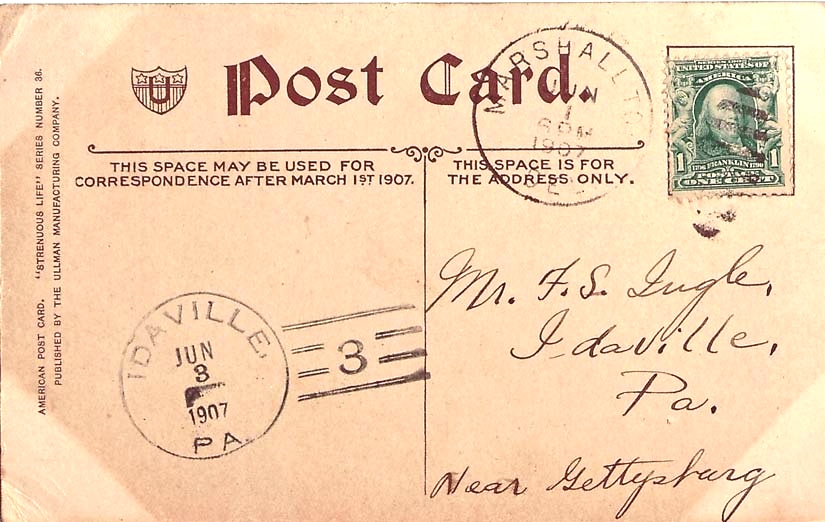 U
Post Card.
THIS SPACE MAY BE USED FOR
CORRESPONDENCE AFTER MARCH 1ST 1907.
THIS SPACE IS FOR
THE ADDRESS ONLY.
AMERICAN POST CARD. "STRENUOUS LIFE" SERIES NUMBER 36.
PUBLISHED BY THE ULLMAN MANUFACTURING COMPANY.
MARSHALLTO
JUN
1
6 PM
1907
SERIES 1902
UNITED STATES OF
AMERICA
1 1
FRANKLIN
POSTAGE
ONE CENT
Mr. F. S. Ingle,
Idaville,
Pa.
Near Gettysburg
IDAVILLE,
JUN
3
1907
PA.
3